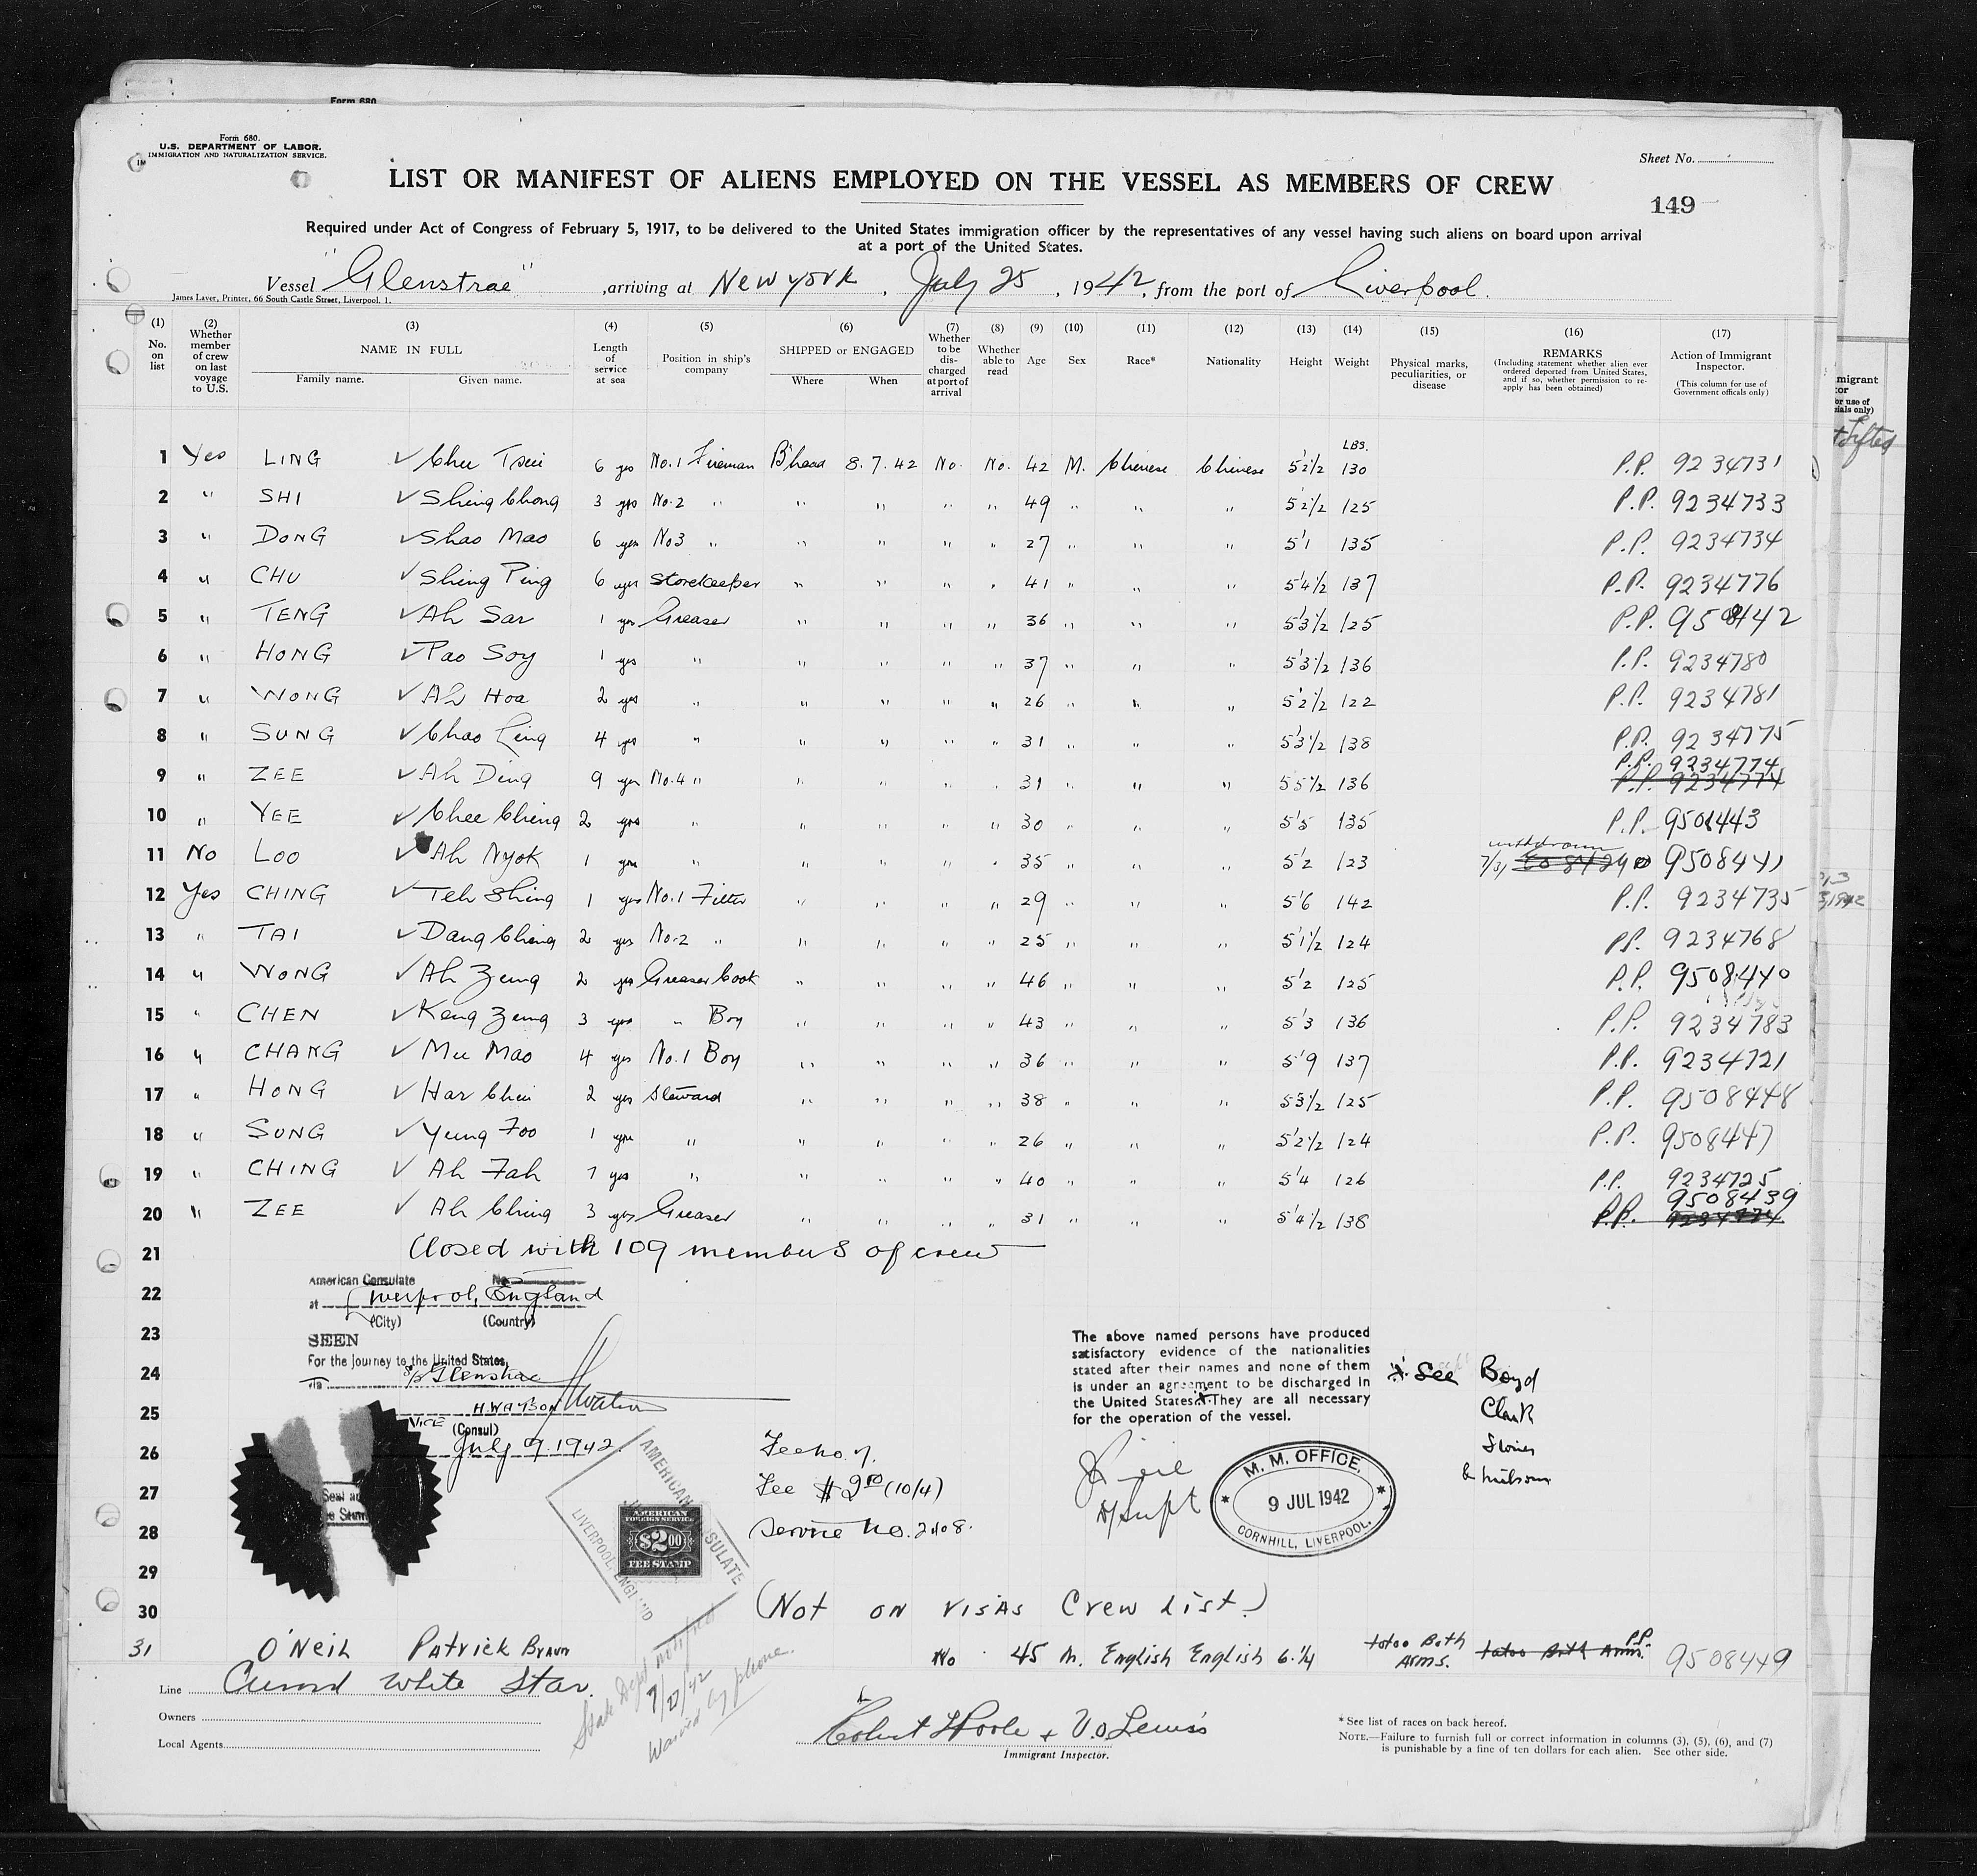 Form 680
Form 680.
U.S. DEPARTMENT OF LABOR.
IMMIGRATION AND NATURALIZATION SERVICE.
Sheet No.
LIST OR MANIFEST OF ALIENS EMPLOYED ON THE VESSEL AS MEMBERS OF CREW
149
Required under Act of Congress of February 5, 1917, to be delivered to the United States immigration officer by the representatives of any vessel having such aliens on board upon arrival
at a port of the United States.
Vessel "Glenstrae" , arriving at New York , July 25 , 1942, from the port of Liverpool.
James Laver, Printer, 66 South Castle Street, Liverpool. 1.
(1) No. on list (2) Whether member of crew on last voyage to U.S. (3) NAME IN FULL Family name. Given name. (4) Length of service at sea (5) Position in ship's company (6) SHIPPED or ENGAGED Where When (7) Whether to be discharged at port of arrival (8) Whether able to read (9) Age (10) Sex (11) Race* (12) Nationality (13) Height (14) Weight (15) Physical marks, peculiarities, or disease (16) REMARKS (Including statement whether alien ever ordered deported from United States, and if so, whether permission to re-apply has been obtained) (17) Action of Immigrant Inspector. (This column for use of Government officials only)
LBS.
1 Yes LING ✓ Chu Tsui 6 yrs No.1 Fireman B'head 8.7.42 No. No. 42 M. Chinese Chinese 5'2½ 130 P.P. 9234731
2 " SHI ✓ Shing Chong 3 yrs No.2 " " " " " 49 " " " 5'2½ 125 P.P. 9234733
3 " DONG ✓ Shao Mao 6 yrs No3 " " " " " 27 " " " 5'1 135 P.P. 9234734
4 " CHU ✓ Shing Ping 6 yrs Storekeeper " " " " 41 " " " 5'4½ 137 P.P. 9234776
5 " TENG ✓ Ah Sar 1 yrs Greaser " " " " 36 " " " 5'3½ 125 P.P.
6 " HONG ✓ Pao Soy 1 yrs " " " " " 37 " " " 5'3½ 136 P.P. 9234780
7 " WONG ✓ Ah Hoa 2 yrs " " " " " 26 " " " 5'2½ 122 P.P. 9234781
8 " SUNG ✓ Chao Ling 4 yrs " " " " " 31 " " " 5'3½ 138 P.P. 9234775
9 " ZEE ✓ Ah Ding 9 yrs No.4 " " " " " 31 " " " 5'5½ 136 P.P. 9234774
P.P. 9234774
10 " YEE ✓ Chee Ching 2 yrs " " " " " 30 " " " 5'5 135 P.P.
11 No LOO ✓ Ah Nyok 1 yrs " " " " " 35 " " " 5'2 123 withdrawn 7/31 9508441
12 Yes CHING ✓ Teh Shing 1 yrs No.1 Fitter " " " " 29 " " " 5'6 142 P.P. 9234735
13 " TAI ✓ Dang Ching 2 yrs No.2 " " " " " 25 " " " 5'1½ 124 P.P. 9234768
14 " WONG ✓ Ah Zung 2 yrs Greaser Cook " " " " 46 " " " 5'2 125 P.P. 9508440
15 " CHEN ✓ Keng Zung 3 yrs " Boy " " " " 43 " " " 5'3 136 P.P. 9234783
16 " CHANG ✓ Mu Mao 4 yrs No.1 Boy " " " " 36 " " " 5'9 137 P.P. 9234721
17 " HONG ✓ Har Chui 2 yrs Steward " " " " 38 " " " 5'3½ 125 P.P. 9508448
18 " SUNG ✓ Yung Foo 1 yrs " " " " " 26 " " " 5'2½ 124 P.P. 9508447
19 " CHING ✓ Ah Fah 7 yrs " " " " " 40 " " " 5'4 126 P.P. 9234725
20 " ZEE ✓ Ah Ching 3 yrs Greaser " " " " 31 " " " 5'4½ 138 P.P. 9508439
21 Closed with 109 members of crew
22 American Consulate No
at Liverpool, England
(City) (Country)
23 SEEN
For the journey to the United States,
24 via S/S Glenstrae
25 H. WATSON
VICE (Consul)
26 July 9. 1942.
27
28
29
30
Seal
AMERICAN CONSULATE
LIVERPOOL, ENGLAND
AMERICAN
FOREIGN SERVICE
$2.00
FEE STAMP
Fee no 7.
Fee $2.00 (10/4)
Service No. 2408.
The above named persons have produced
satisfactory evidence of the nationalities
stated after their names and none of them
is under an agreement to be discharged in
the United States. They are all necessary
for the operation of the vessel.
D/Supt
M. M. OFFICE,
9 JUL 1942
CORNHILL, LIVERPOOL.
See Boyd
Clark
(Not on visas Crew List)
31 O'Neil Patrick Bryan No 45 M. English English 6.¼ tatoo Both Arms. tatoo Both Arms. P.P. 9508449
Line Cunard White Star.
Owners
Local Agents
State Dept notified
7/27/42
Waived by phone.
Robert H Poole + V.O. Lewis
Immigrant Inspector.
* See list of races on back hereof.
NOTE.—Failure to furnish full or correct information in columns (3), (5), (6), and (7)
is punishable by a fine of ten dollars for each alien. See other side.